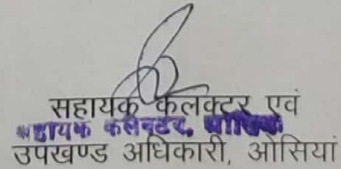 सहायक कलक्टर एवं
सहायक कलक्टर,
उपखण्ड अधिकारी, ओसियां